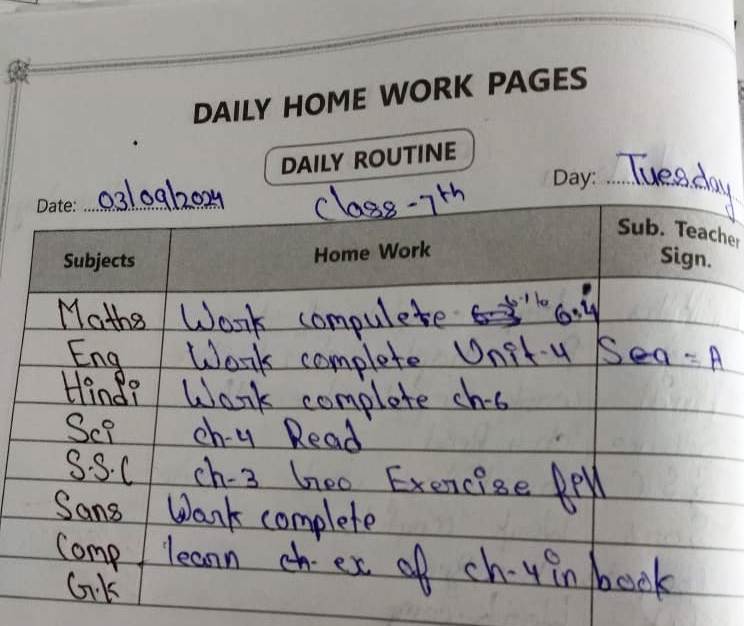 DAILY HOME WORK PAGES
DAILY ROUTINE
Date: 03/09/2024 Class-7th Day: Tuesday
Subjects Home Work Sub. Teacher Sign.
Maths Work compulete 6.1 to 6.4
Eng Work complete Unit-4 Sea = A
Hindi Work complete ch-6
Sci ch-4 Read
S.S.C ch-3 Geo Exercise fill
Sans Work complete
Comp learn ch-ex of ch-4 in book
G.K